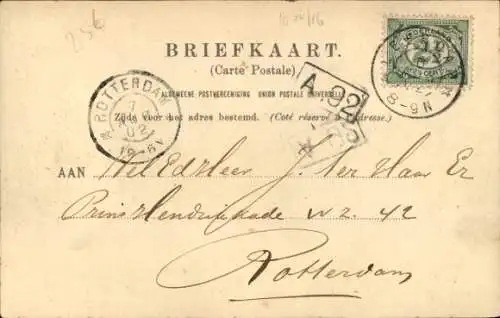 25c
BRIEFKAART.
(Carte Postale)
ALGEMEENE POSTVEREENIGING UNION POSTALE UNIVERSELLE
Zijde voor het adres bestemd. (Coté réservé à l'adresse.)
ROTTERDAM
7
02
8-9N
AAN Wel Ed. Heer J. Ter Haar Er
Prins Hendrikkade No. 42
Rotterdam